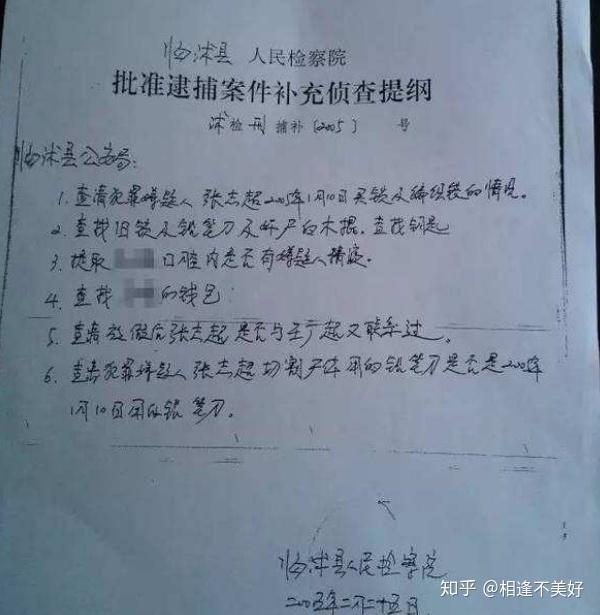 临沭县 人民检察院
批准逮捕案件补充侦查提纲
沭检刑捕补〔2005〕 号
临沭县公安局:
1. 查清犯罪嫌疑人张志超2005年1月10日买锁及编组锁的情况。
2. 查找旧锁及铅笔刀及奸尸的木棍。查找钥匙
3. 提取 口腔内是否有嫌疑人精液。
4. 查找 的钱包
5. 查清放假后张志超是否与王广超又联系过。
6. 查清犯罪嫌疑人张志超切割尸体用的铅笔刀是否是2005年
1月10日用的铅笔刀。
临沭县人民检察院
二00五年二月二十五日
知乎 @相逢不美好